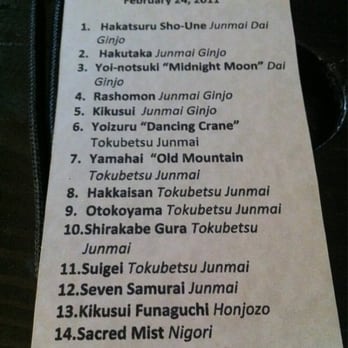 February 24, 2011
1. Hakatsuru Sho-Une Junmai Dai
Ginjo
2. Hakutaka Junmai Ginjo
3. Yoi-notsuki “Midnight Moon” Dai
Ginjo
4. Rashomon Junmai Ginjo
5. Kikusui Junmai Ginjo
6. Yoizuru “Dancing Crane”
Tokubetsu Junmai
7. Yamahai “Old Mountain
Tokubetsu Junmai
8. Hakkaisan Tokubetsu Junmai
9. Otokoyama Tokubetsu Junmai
10.Shirakabe Gura Tokubetsu
Junmai
11.Suigei Tokubetsu Junmai
12.Seven Samurai Junmai
13.Kikusui Funaguchi Honjozo
14.Sacred Mist Nigori